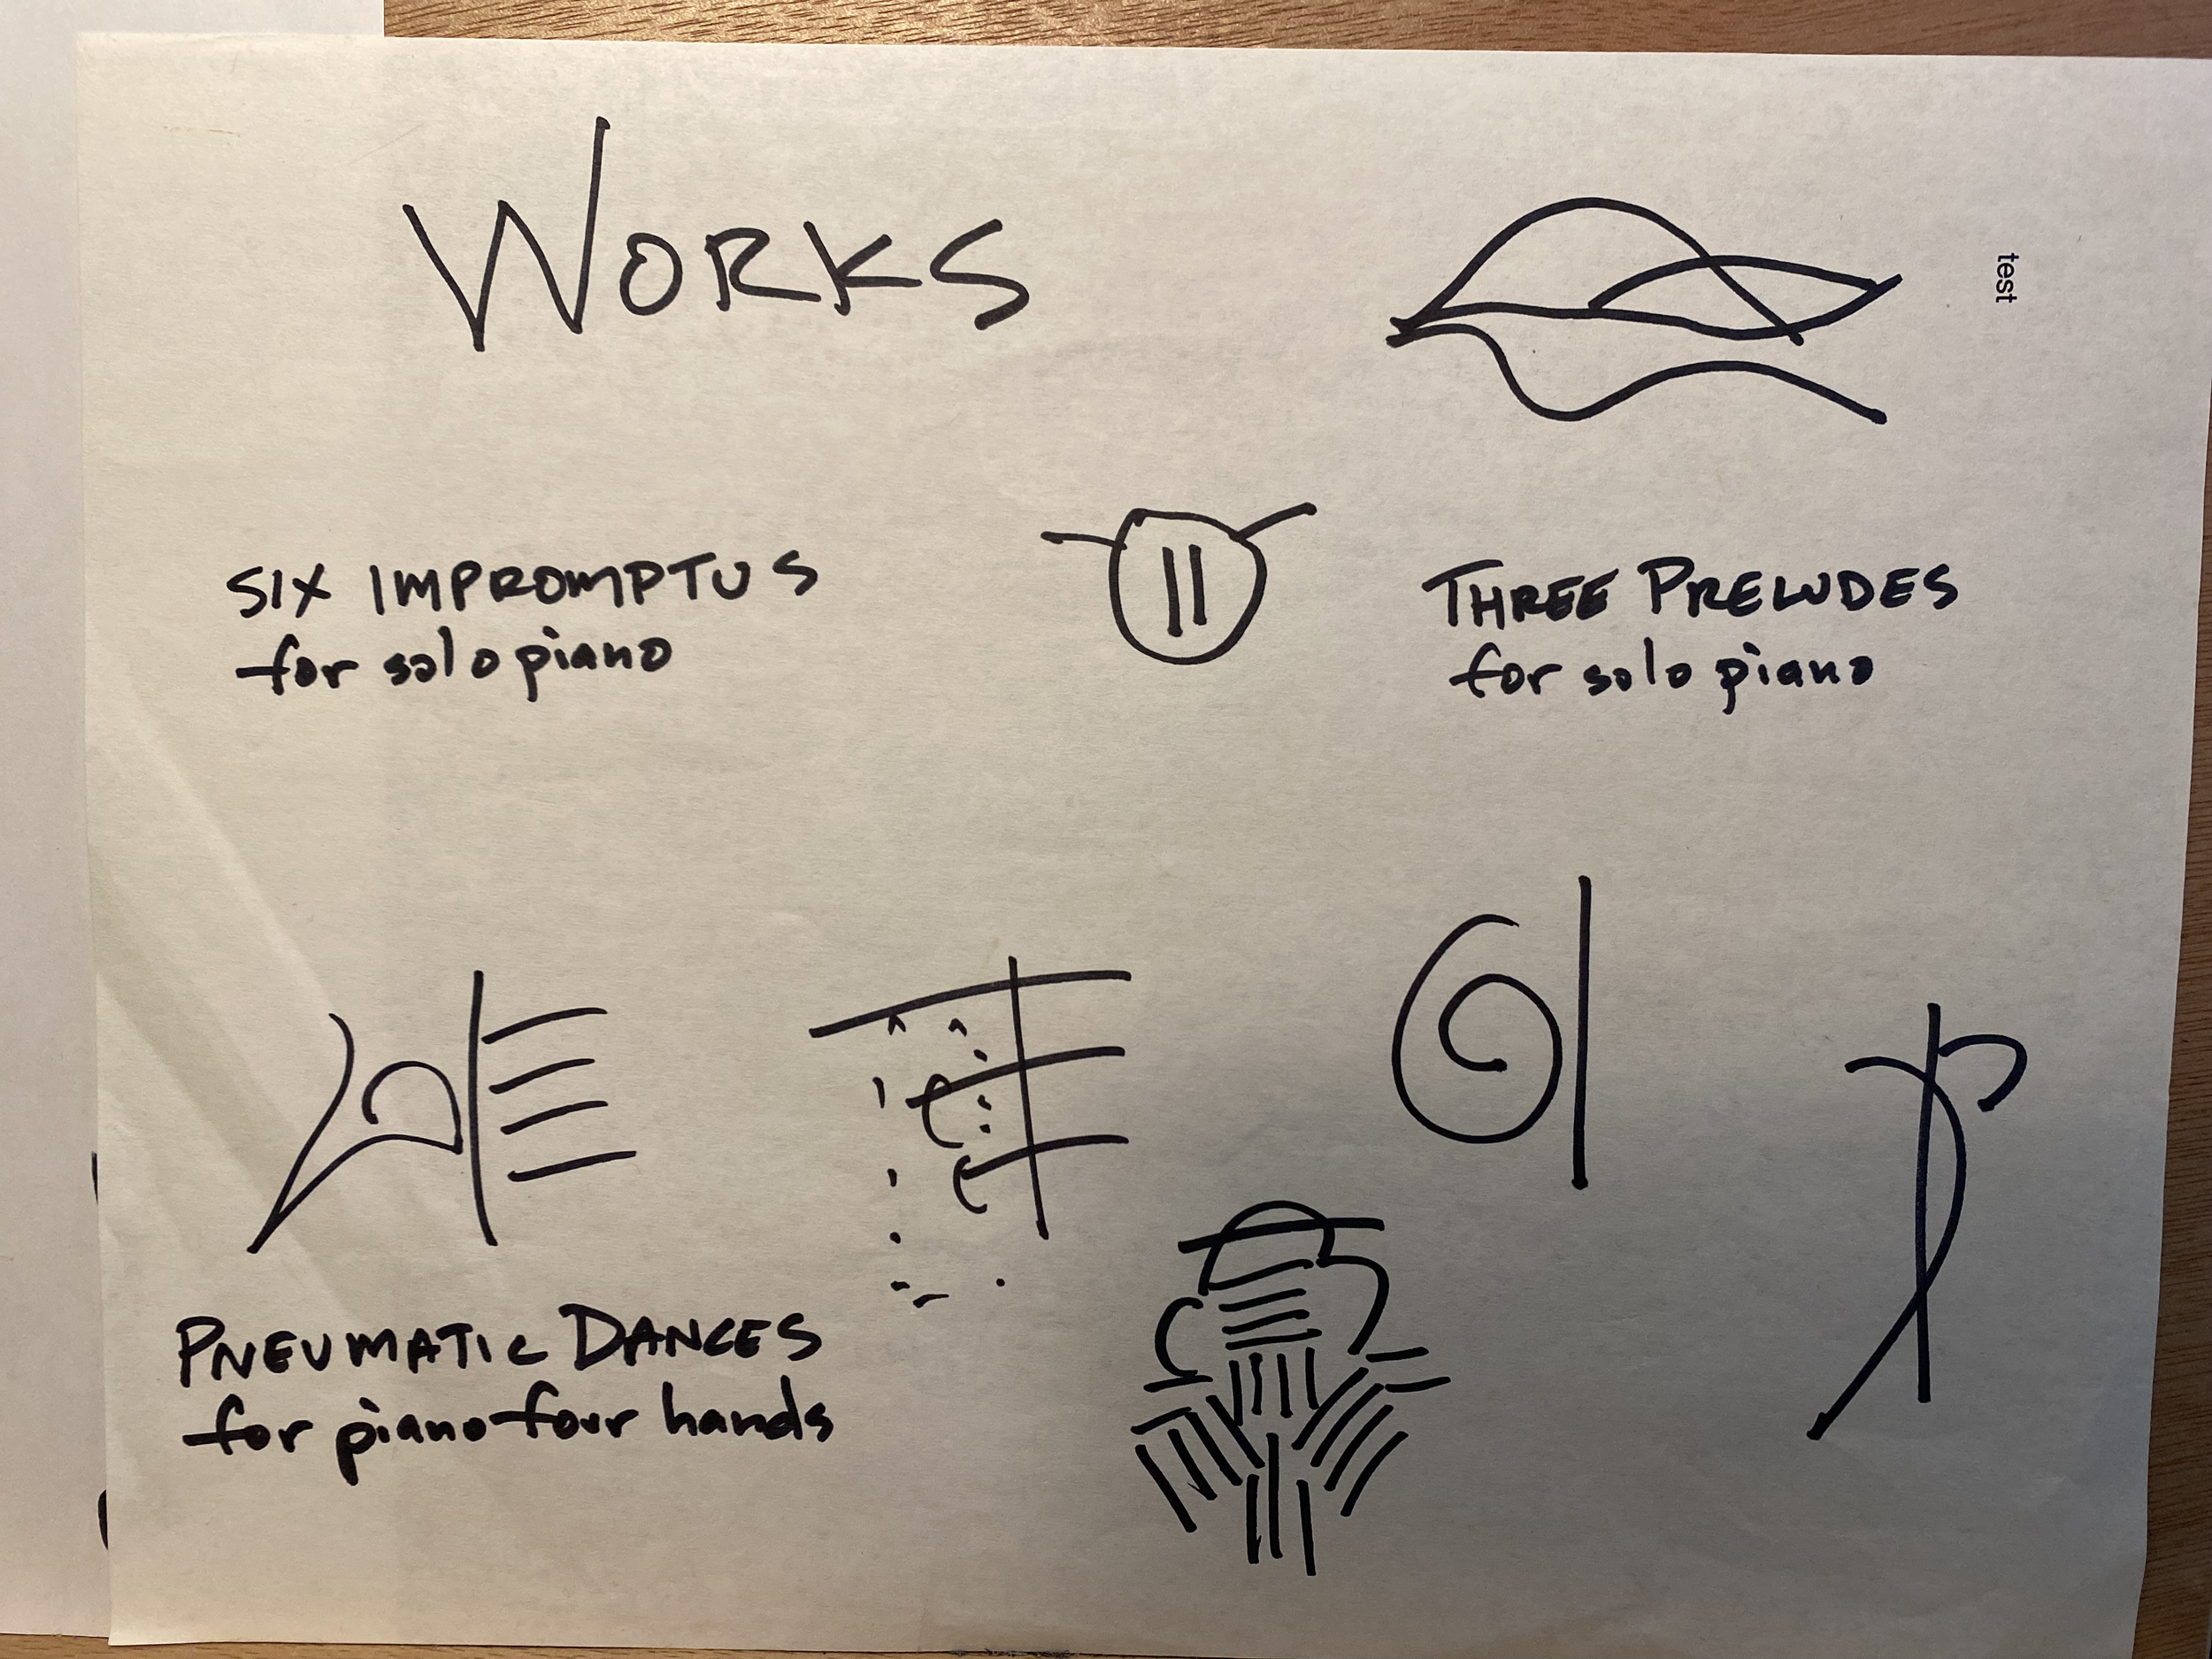 WORKS
test
SIX IMPROMPTUS
for solo piano
THREE PRELUDES
for solo piano
PNEUMATIC DANCES
for piano four hands